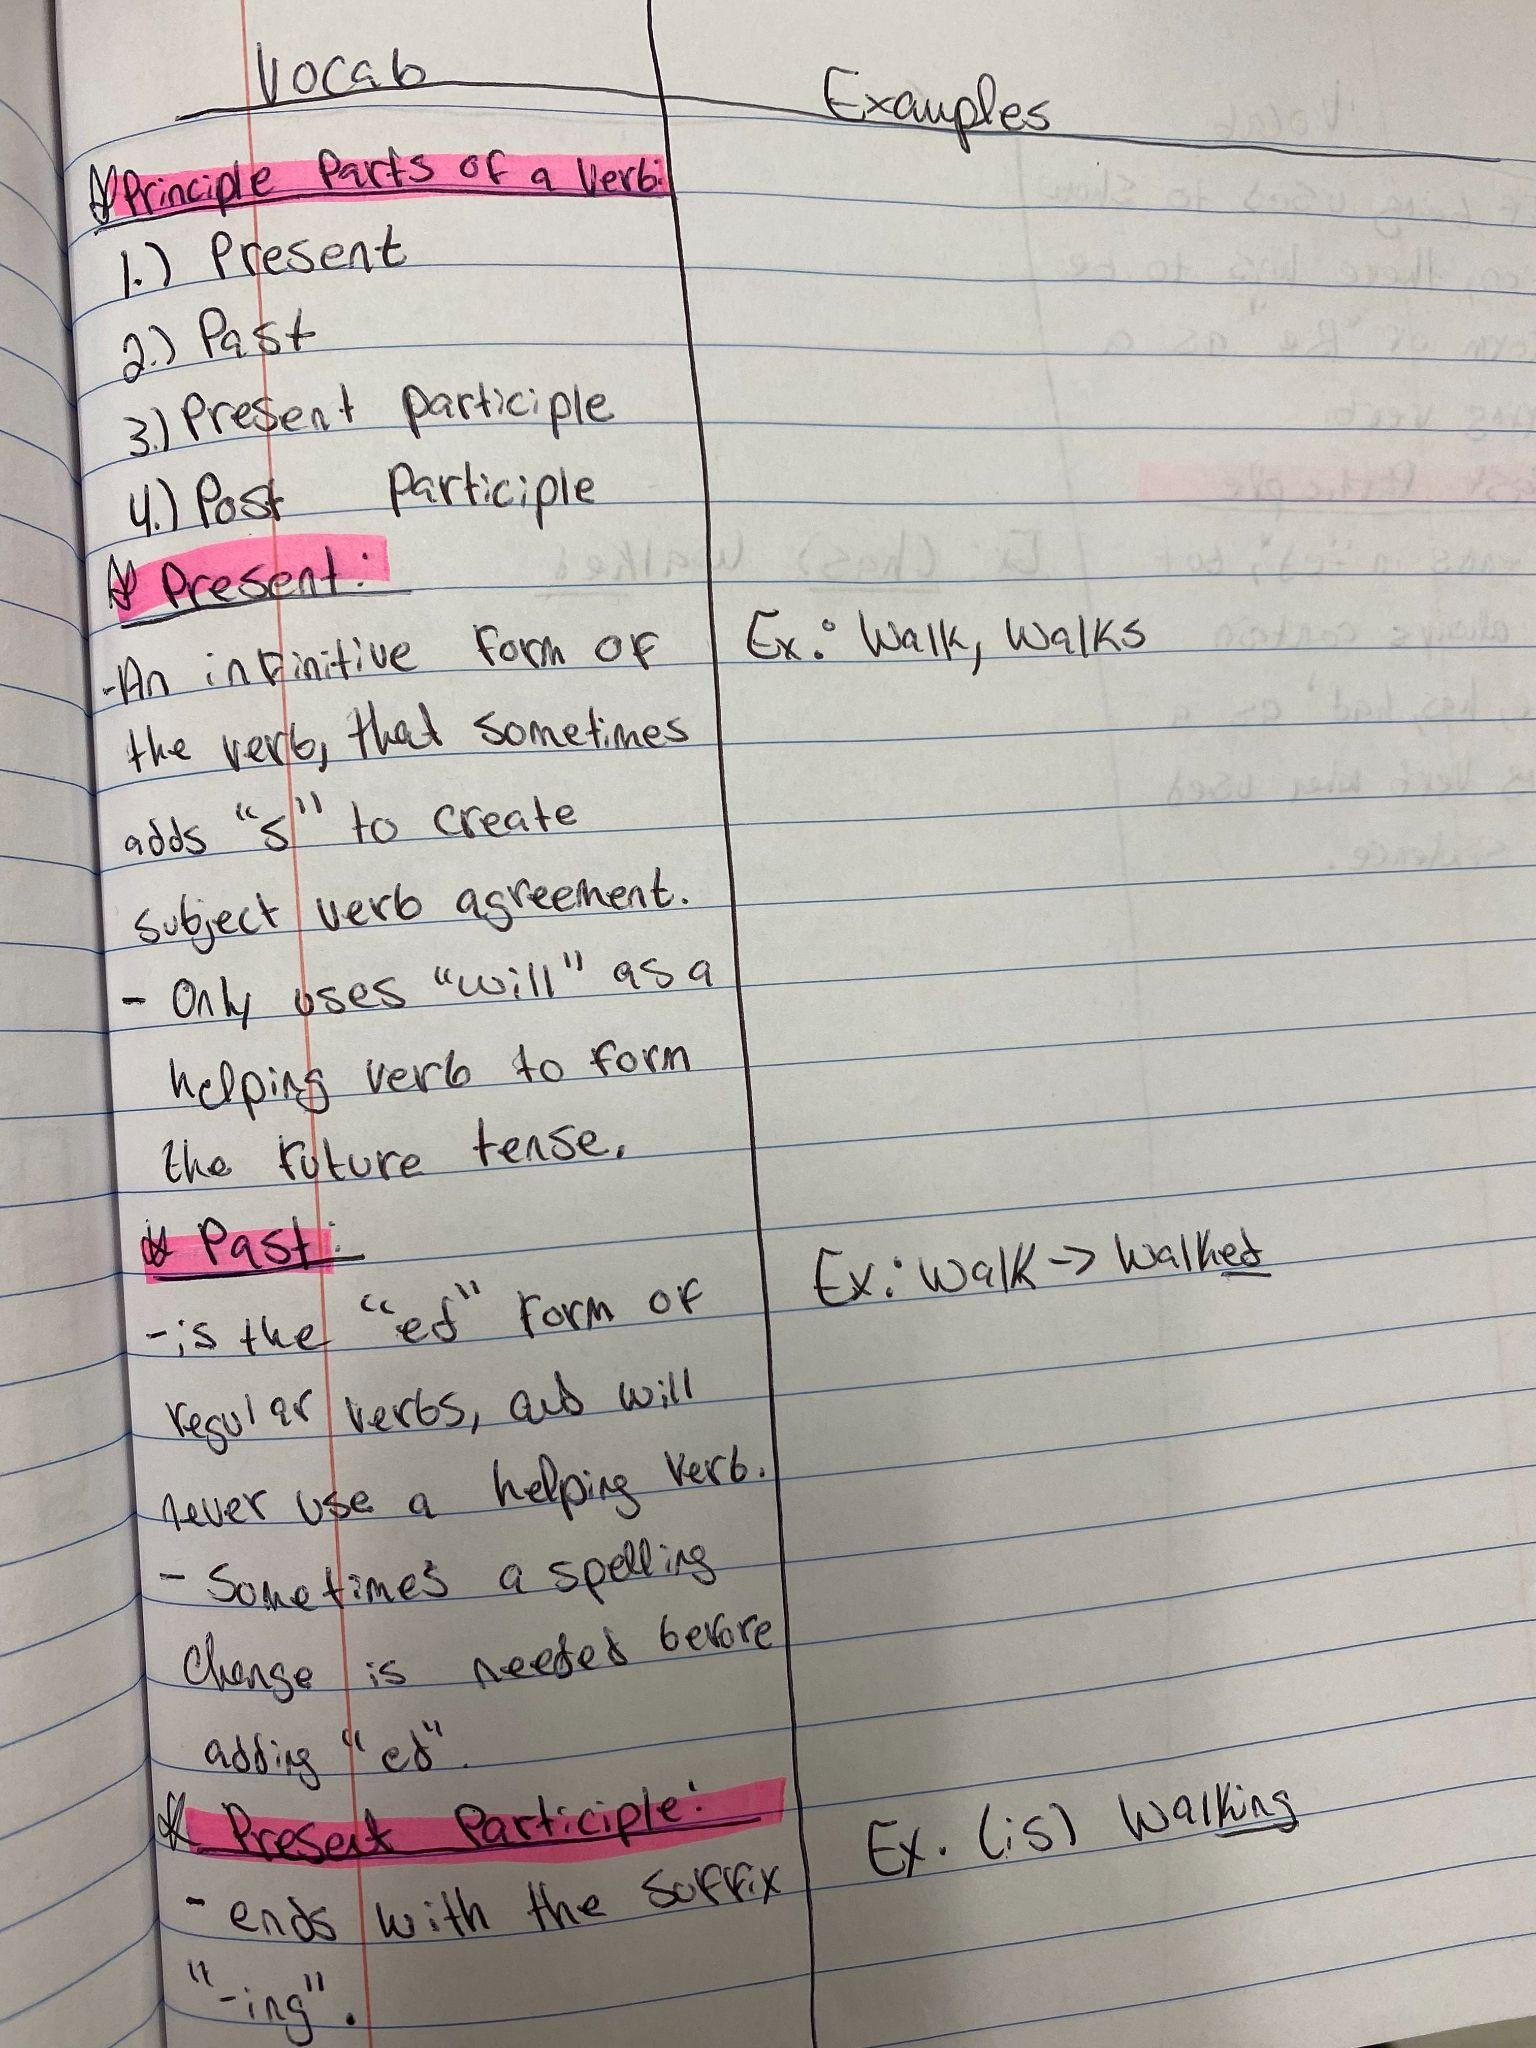 Vocab
Examples
Principle Parts of a Verb:
1.) Present
2.) Past
3.) Present participle
4.) Past participle
Present:
-An infinitive form of
Ex: Walk, Walks
the verb, that sometimes
adds "s" to create
subject verb agreement.
- Only uses "will" as a
helping verb to form
the future tense.
Past:
Ex: Walk -> Walked
-is the "ed" form of
regular verbs, and will
never use a helping verb.
- Sometimes a spelling
change is needed before
adding "ed".
Present Participle:
Ex. (is) Walking
- ends with the suffix
"-ing".